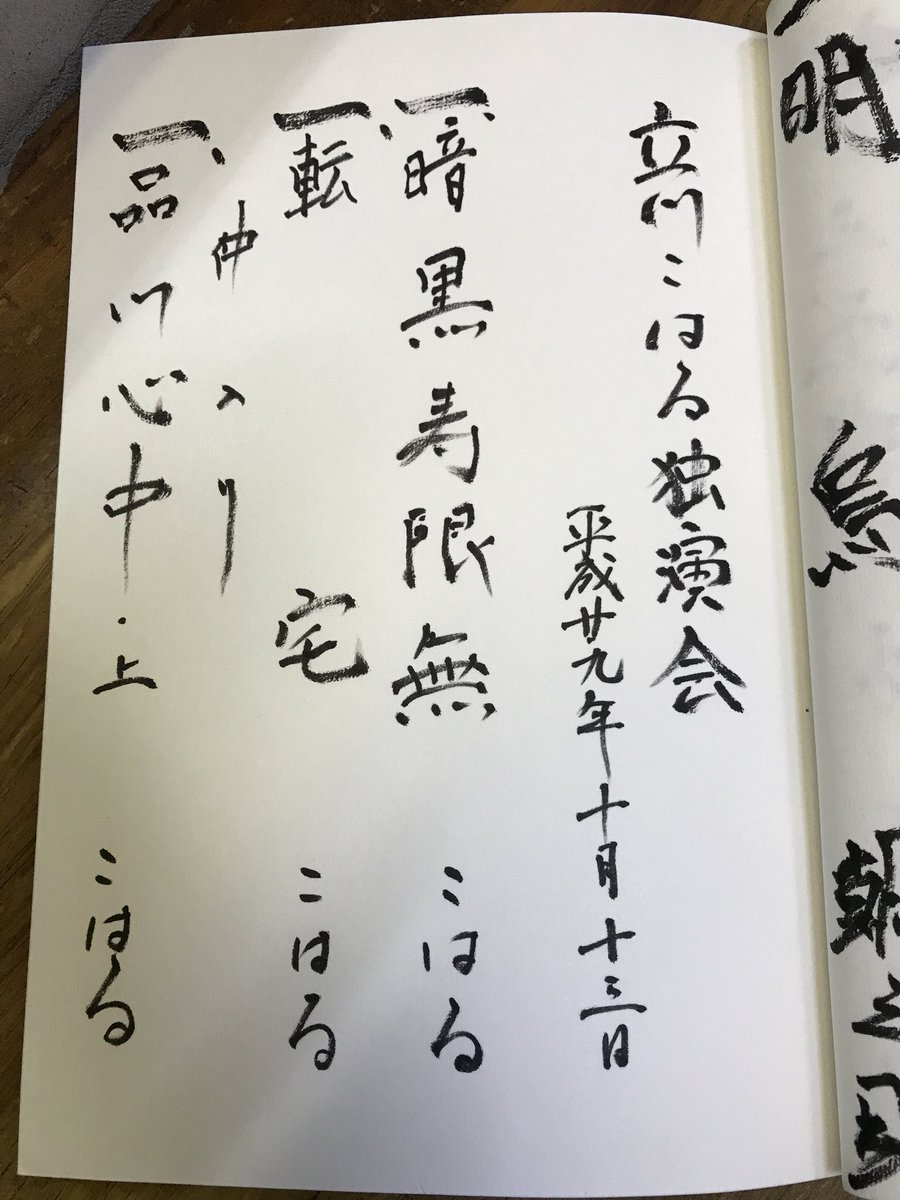 一、明烏
立川こはる独演会
平成廿九年十月十三日
一、暗黒寿限無 こはる
一、転宅 こはる
、仲入り
一品川心中・上 こはる